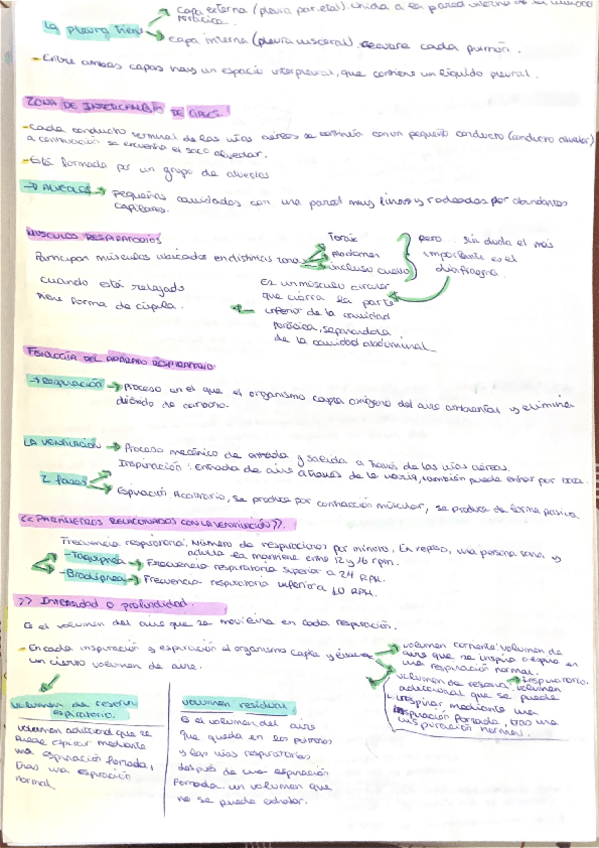 capa externa (pleura parietal). Unida a la pared interna de la cavidad
torácica.
La pleura tiene
capa interna (pleura visceral). Recubre cada pulmón.
- Entre ambas capas hay un espacio interpleural, que contiene un líquido pleural.
ZONA DE INTERCAMBIO DE GASES.
- Cada conducto terminal de las vías aéreas se continúa con un pequeño conducto (conducto alveolar)
a continuación se encuentra el saco alveolar.
- Está formada por un grupo de alveolos
→ ALVEOLOS → pequeñas cavidades con una pared muy fina y rodeadas por abundantes
capilares.
MUSCULOS RESPIRATORIOS
Participan músculos ubicados en distintas zonas
Torax
Abdomen
incluso cuello
pero sin duda el más
importante es el
diafragma.
Es un músculo circular
que cierra la parte
inferior de la cavidad
torácica, separándola
de la cavidad abdominal
Cuando está relajado
tiene forma de cúpula.
FISIOLOGÍA DEL APARATO RESPIRATORIO
→ Respiración → Proceso en el que el organismo capta oxígeno del aire ambiental y elimina
dióxido de carbono.
LA VENTILACIÓN → Proceso mecánico de entrada y salida a través de las vías aéreas.
2 fases
Inspiración: Entrada de aire a través de la nariz, también puede entrar por boca.
Espiración: Al contrario, se produce por contracción múscular, se produce de forma pasiva.
<< PARAMETROS RELACIONADOS CON LA VENTILACIÓN >>.
Frecuencia respiratoria: Número de respiraciones por minuto. En reposo, una persona sana y
adulta la mantiene entre 12 y 16 rpm.
- Taquipnea → Frecuencia respiratoria superior a 24 RPM.
- Bradipnea → Frecuencia respiratoria inferior a 10 RPM.
>> Intensidad o profundidad.
Es el volumen del aire que se moviliza en cada respiración.
- En cada inspiración y espiración el organismo capta y
un cierto volumen de aire.
volumen corriente: volumen de
aire que se inspira o espira en
una respiración normal.
volumen de reserva → Inspiratorio.
volumen
adicional que se puede
inspirar mediante una
inspiración forzada, tras una
inspiración normal.
volumen de reserva
espiratorio.
volumen adicional que se
puede espirar mediante
una espiración forzada,
tras una espiración
normal.
volumen residual
Es el volumen del aire
que queda en los pulmones
y las vías respiratorias
después de una espiración
forzada. un volumen que
no se puede exhalar.